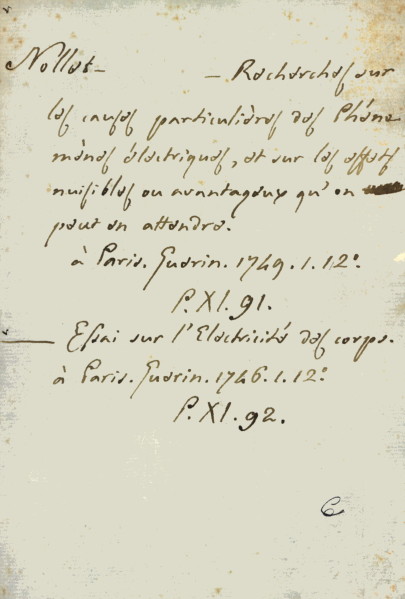 Nollet — — Recherches sur
les causes particulières des Phéno
mènes électriques, et sur les effets
nuisibles ou avantageux qu'on
peut en attendre.
à Paris. Guerin. 1749. 1. 12°.
P. XI. 91.
— Essai sur l'Electricité des corps.
à Paris. Guerin. 1746. 1. 12°.
P. XI. 92.